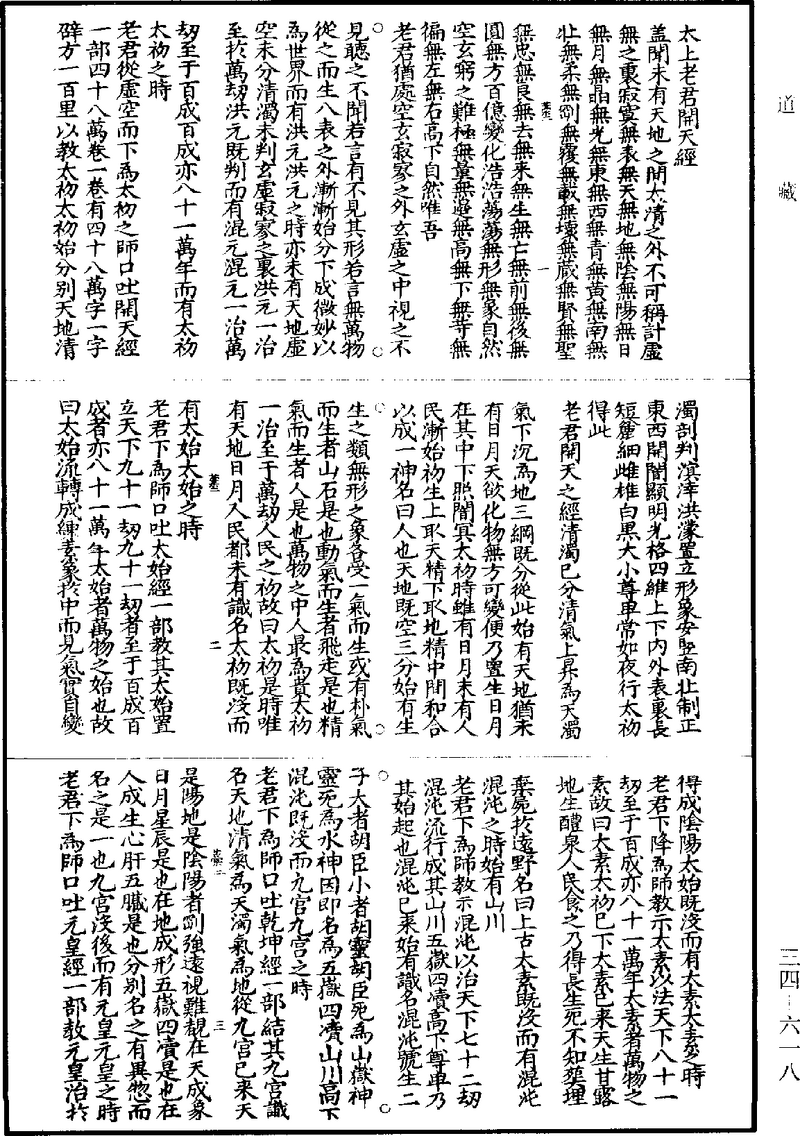 道藏
太上老君開天經
蓋聞未有天地之間太清之外不可稱計虛
無之裏寂寞無表無天無地無陰無陽無日
無月無晶無光無東無西無青無黃無南無
北無柔無剛無覆無載無壞無藏無賢無聖
無忠無良無去無來無生無亡無前無後無
圓無方百億變化浩浩蕩蕩無形無象自然
空玄窮之難極無量無邊無高無下無等無
偏無左無右高下自然唯吾
老君猶處空玄寂寥之外玄虛之中視之不
見聽之不聞若言有不見其形若言無萬物
從之而生八表之外漸漸始分下成微妙以
為世界而有洪元洪元之時亦未有天地虛
空未分清濁未判玄虛寂寥之裏洪元一治
至於萬劫洪元既判而有混元混元一治萬
劫至于百成百成亦八十一萬年而有太初
太初之時
老君從虛空而下為太初之師口吐開天經
一部四十八萬卷一卷有四十八萬字一字
辟方一百里以教太初太初始分別天地清
濁剖判溟涬洪濛置立形象安竪南北制正
東西開闇顯明光格四維上下內外表裏長
短麤細雌雄白黑大小尊卑常如夜行太初
得此
老君開天之經清濁已分清氣上昇為天濁
氣下沉為地三綱既分從此始有天地猶未
有日月天欲化物無方可變便乃置生日月
在其中下照闇冥太初時雖有日月未有人
民漸始初生上取天精下取地精中間和合
以成一神名曰人也天地既空三分始有生
生之類無形之象各受一氣而生或有朴氣
而生者山石是也動氣而生者飛走是也精
氣而生者人是也萬物之中人最為貴太初
一治至于萬劫人民之初故曰太初是時唯
有天地日月人民都未有識名太初既沒而
有太始太始之時
老君下為師口吐太始經一部教其太始置
立天下九十一劫九十一劫者至于百成百
成者亦八十一萬年太始者萬物之始也故
曰太始流轉成練素象於中而見氣實自變
得成陰陽太始既沒而有太素太素之時
老君下降為師教示太素以法天下八十一
劫至于百成亦八十一萬年太素者萬物之
素故曰太素太初已下太素已來天生甘露
地生醴泉人民食之乃得長生死不知葬埋
棄屍於遠野名曰上古太素既沒而有混沌
混沌之時始有山川
老君下為師教示混沌以治天下七十二劫
混沌流行成其山川五嶽四瀆高下尊卑乃
其始起也混沌已來始有識名混沌號生二
子大者胡臣小者胡靈胡臣死為山嶽神
靈死為水神因即名為五嶽四瀆山川高下
混沌既沒而有九宮九宮之時
老君下為師口吐乾坤經一部結其九宮識
名天地清氣為天濁氣為地從九宮已來天
是陽地是陰陰陽者剛強遠視難覩在天成象
日月星辰是也在地成形五嶽四瀆是也在
人成生心肝五臟是也分別名之有異惣而
名之是一也九宮沒後而有元皇元皇之時
老君下為師口吐元皇經一部教元皇治於
一
二
三
三四—六一八